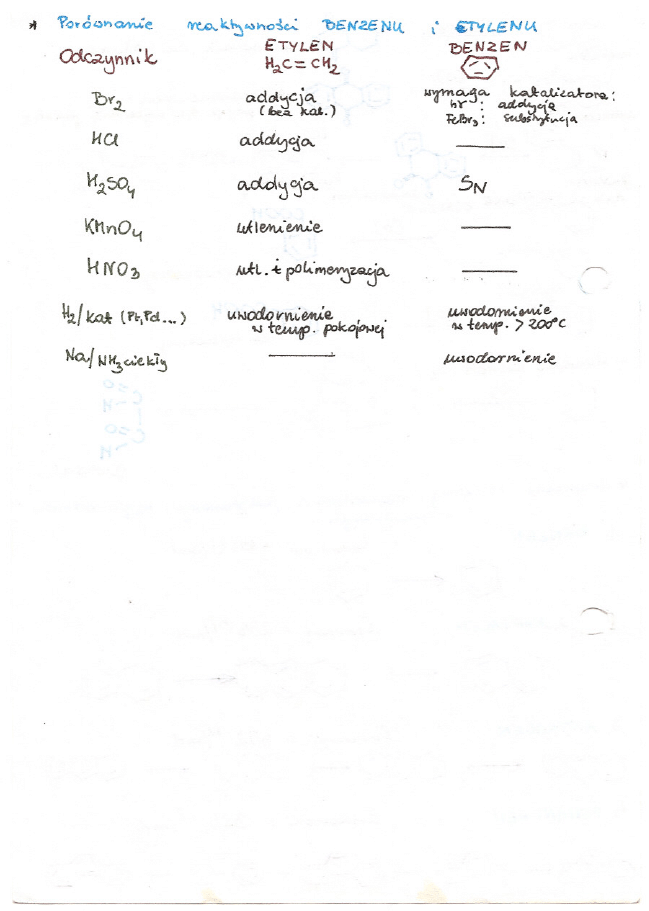 * Porównanie reaktywności BENZENU i ETYLENU
Odczynnik ETYLEN BENZEN
H₂C=CH₂
Br₂ addycja (bez kat.) wymaga katalizatora:
hν: addycja
FeBr₃: substytucja
HCl addycja —
H₂SO₄ addycja SN
KMnO₄ utlenienie —
HNO₃ utl. i polimeryzacja —
H₂/kat (Pt, Pd...) uwodornienie w temp. pokojowej uwodornienie w temp. > 200°C
Na/NH₃ ciekły — uwodornienie